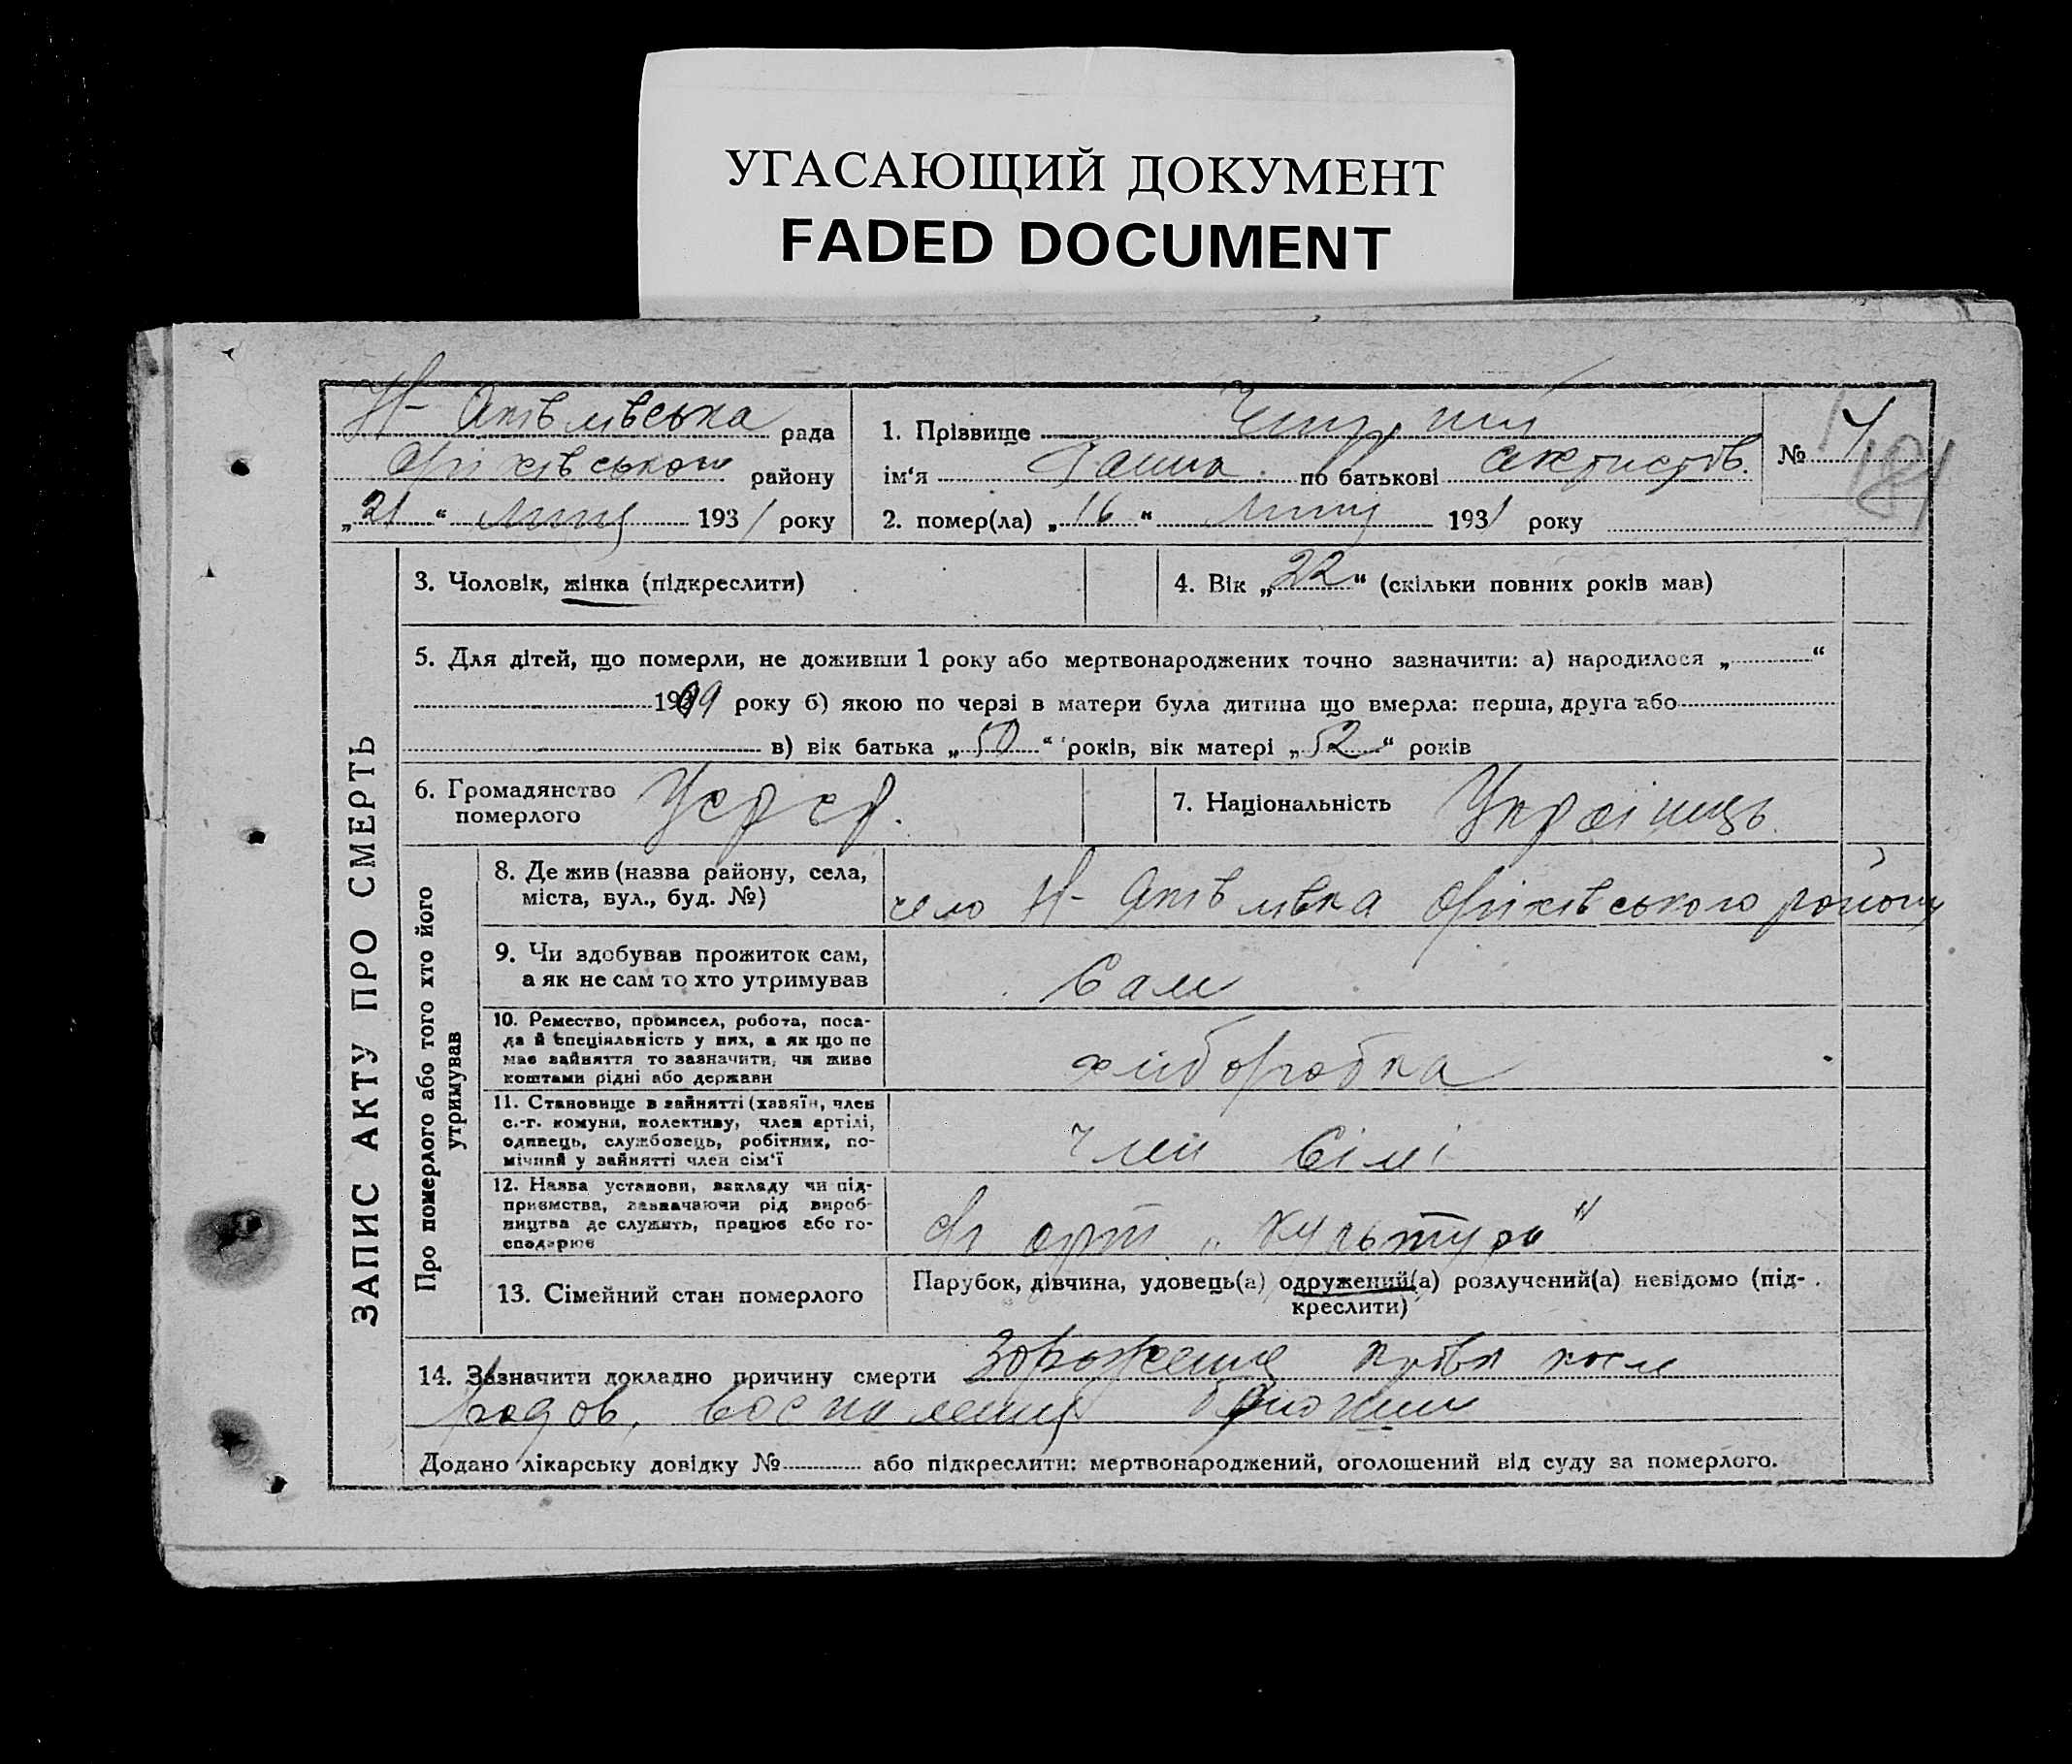 УГАСАЮЩИЙ ДОКУМЕНТ
FADED DOCUMENT
Н-Яківлівська рада
Оріхівського району
„21“ Липня 1931 року
1. Прізвище
ім‘я Ганна по батькові
2. помер(ла) „16“ Липня 1931 року
№ 4
181
ЗАПИС АКТУ ПРО СМЕРТЬ
3. Чоловік, жінка (підкреслити)
4. Вік „22“ (скільки повних років мав)
5. Для дітей, що померли, не доживши 1 року або мертвонароджених точно зазначити: а) народилося „ “
1909 року б) якою по черзі в матери була дитина що вмерла: перша, друга або
в) вік батька „50“ років, вік матері „52“ років
6. Громадянство
померлого
Усрср.
7. Національність Українець
Про померлого або того хто його
утримував
8. Де жив (назва району, села,
міста, вул., буд. №)
село Н-Яківлівка Оріхівського району
9. Чи здобував прожиток сам,
а як не сам то хто утримував
Сам
10. Ремество, промисел, робота, поса-
да й спеціяльність у них, а як що не
має зайняття то зазначити, чи живе
коштами рідні або держави
хліборобка
11. Становище в зайнятті (хазяїн, член
с.-г. комуни, колективу, член артілі,
одинець, службовець, робітник, по-
мічний у зайнятті член сім‘ї
член сімі
12. Назва установи, закладу чи під-
приємства, зазначаючи рід вироб-
ництва де служить, працює або го-
сподарює
арт. „Культура“
13. Сімейний стан померлого
Парубок, дівчина, удовець(а) одружений(а) розлучений(а) невідомо (під-
креслити)
14. Зазначити докладно причину смерти Зораженія крови после
родов, воспаленія брюшини
Додано лікарську довідку № або підкреслити: мертвонароджений, оголошений від суду за померлого.